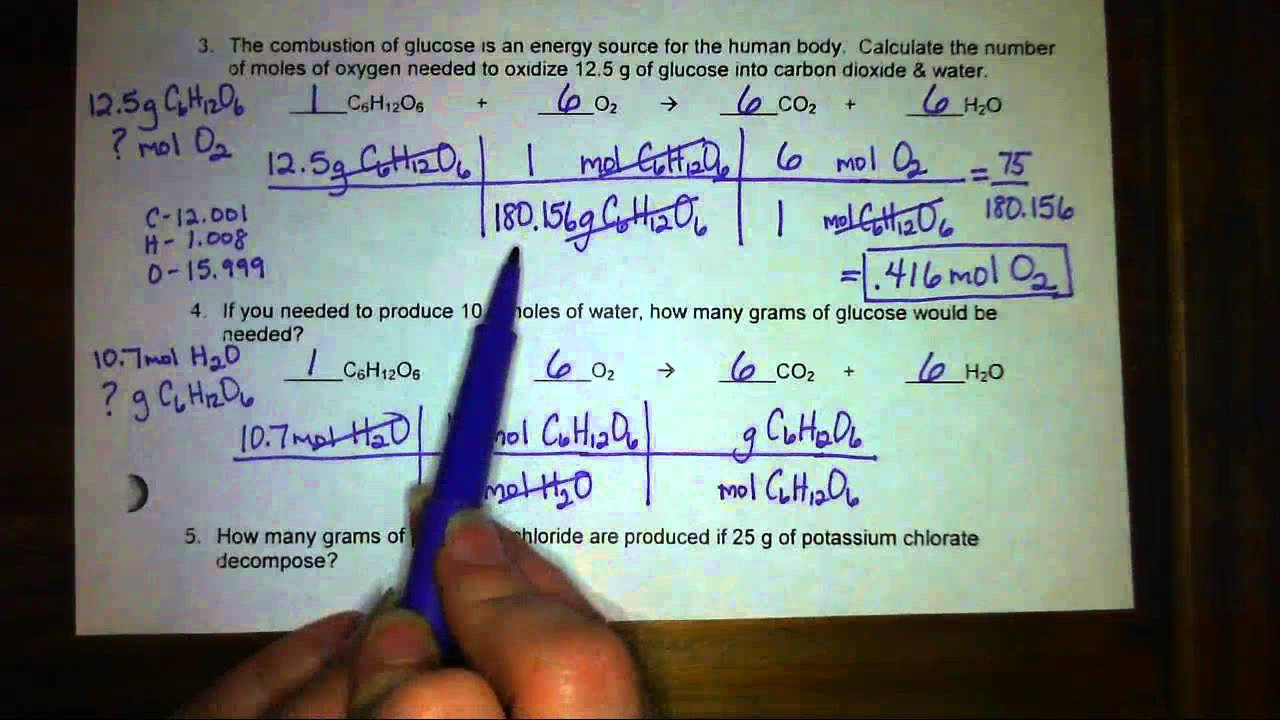 3. The combustion of glucose is an energy source for the human body. Calculate the number
of moles of oxygen needed to oxidize 12.5 g of glucose into carbon dioxide & water.
12.5g C6H12O6
1 C6H12O6 + 6 O2 → 6 CO2 + 6 H2O
? mol O2
12.5g C6H12O6 | 1 mol C6H12O6 | 6 mol O2 = 75
180.156g C6H12O6 | 1 mol C6H12O6 180.156
C-12.001
H-1.008
O-15.999
= .416 mol O2
4. If you needed to produce 10 moles of water, how many grams of glucose would be
needed?
10.7mol H2O
1 C6H12O6 6 O2 → 6 CO2 + 6 H2O
? g C6H12O6
10.7mol H2O | mol C6H12O6 | g C6H12O6
mol H2O | mol C6H12O6
5. How many grams of chloride are produced if 25 g of potassium chlorate
decompose?